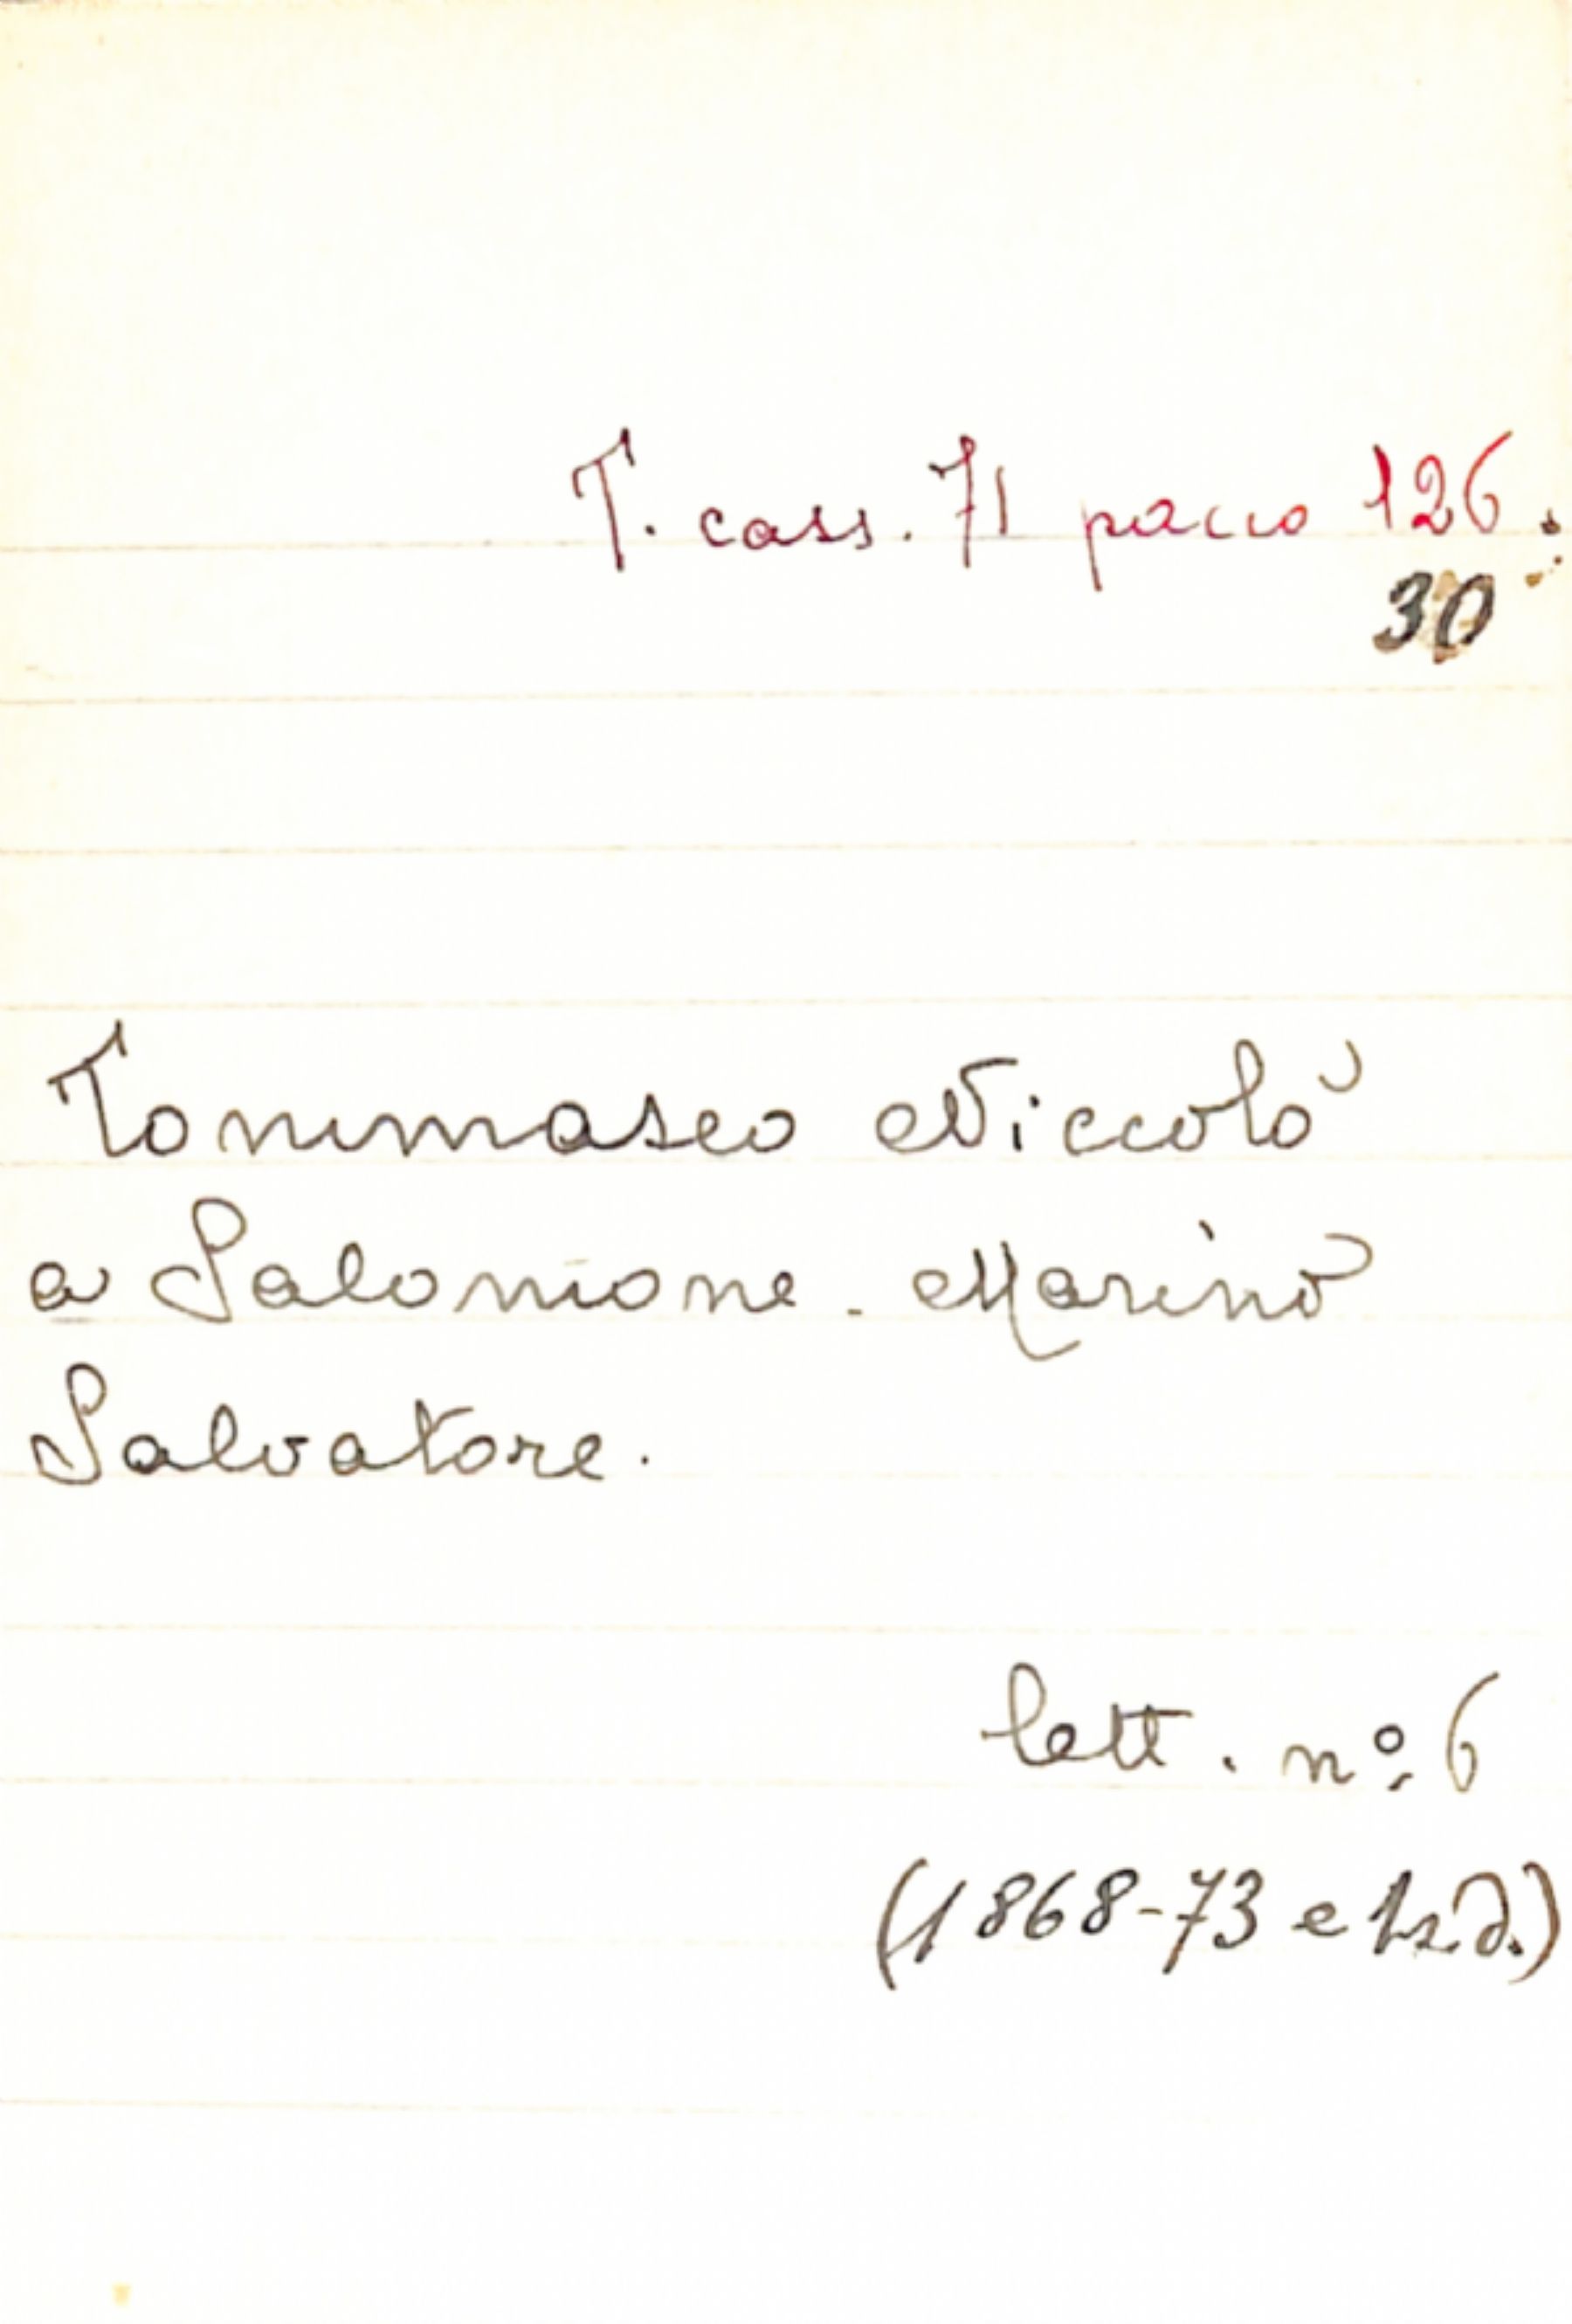 T. cass. 71 pacco 126.
30
Tommaseo Niccolò
a Salomone - Marino
Salvatore.
lett. nº 6
(1868-73 e 1 s.d.)